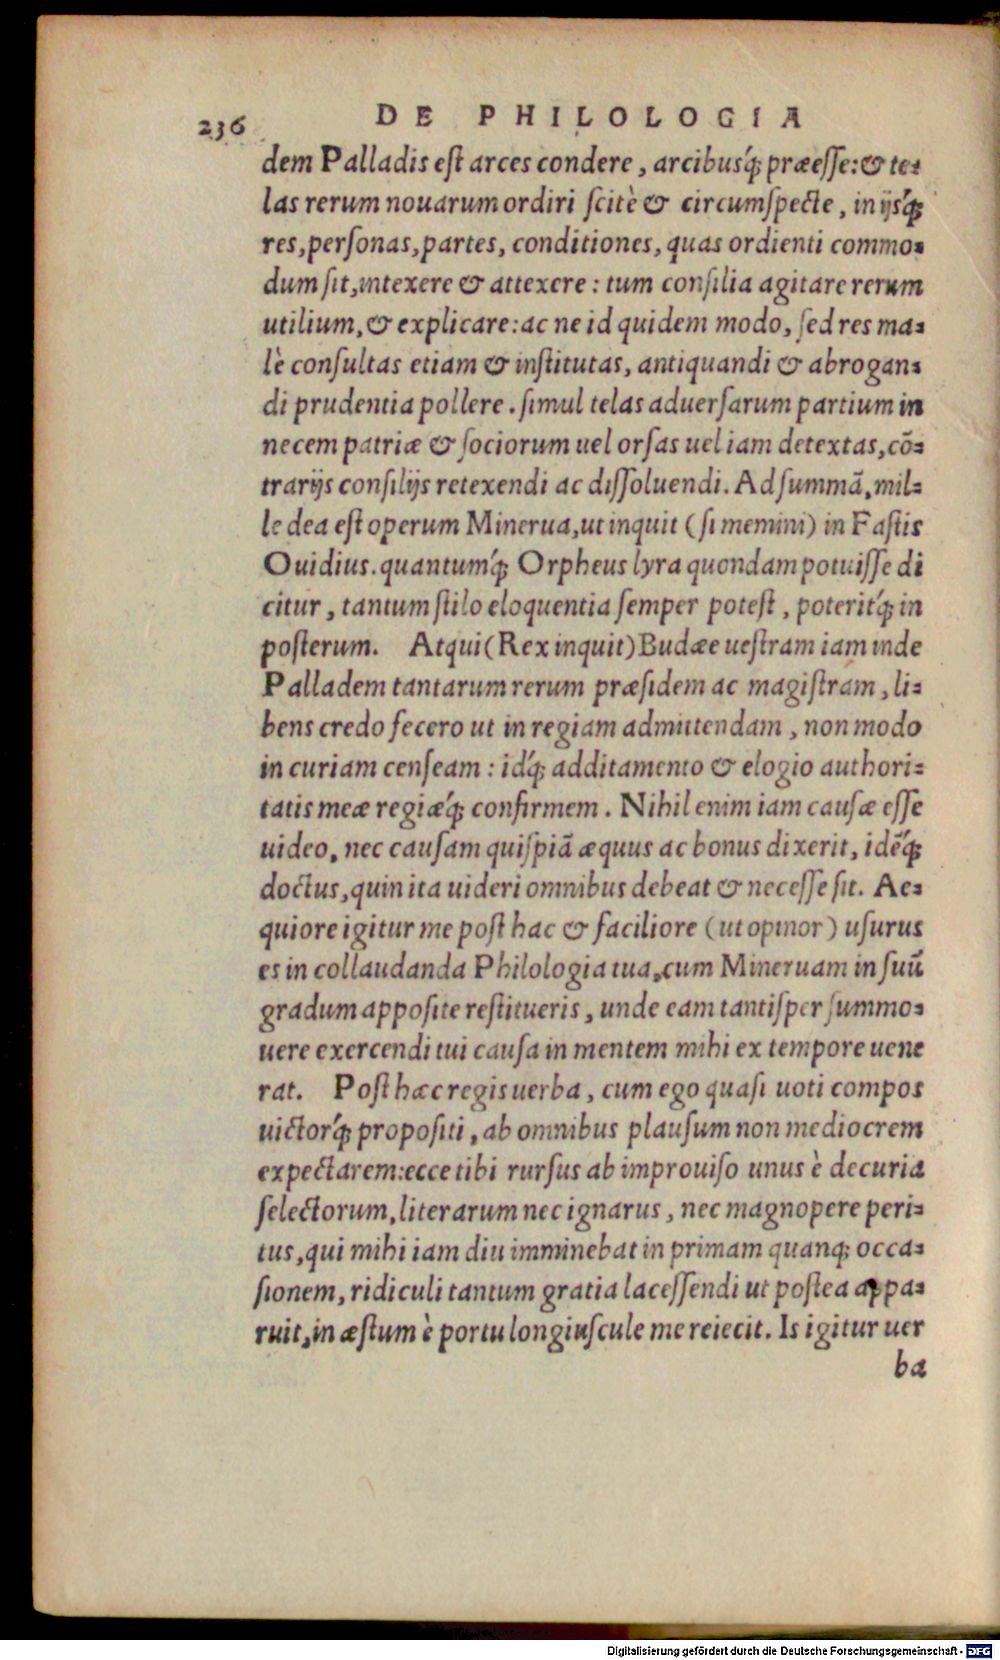 236 DE PHILOLOGIA
dem Palladis est arces condere, arcibusq́; præesse: & te-
las rerum nouarum ordiri scitè & circumspecte, in ijsq́;
res, personas, partes, conditiones, quas ordienti commo-
dum sit, intexere & attexere: tum consilia agitare rerum
utilium, & explicare: ac ne id quidem modo, sed res ma-
lè consultas etiam & institutas, antiquandi & abrogan-
di prudentia pollere. simul telas aduersarum partium in
necem patriæ & sociorum uel orsas uel iam detextas, cō-
trarijs consilijs retexendi ac dissoluendi. Ad summā, mil-
le dea est operum Minerua, ut inquit (si memini) in Fastis
Ouidius. quantumq́; Orpheus lyra quondam potuisse di
citur, tantum stilo eloquentia semper potest, poteritq́; in
posterum. Atqui (Rex inquit) Budæe uestram iam inde
Palladem tantarum rerum præsidem ac magistram, li-
bens credo fecero ut in regiam admittendam, non modo
in curiam censeam: idq́; additamento & elogio authori-
tatis meæ regiæq́; confirmem. Nihil enim iam causæ esse
uideo, nec causam quispiā æquus ac bonus dixerit, idēq́;
doctus, quin ita uideri omnibus debeat & necesse sit. Ae-
quiore igitur me post hac & faciliore (ut opinor) usurus
es in collaudanda Philologia tua, cum Mineruam in suū
gradum apposite restitueris, unde eam tantisper summo-
uere exercendi tui causa in mentem mihi ex tempore uene
rat. Post hæc regis uerba, cum ego quasi uoti compos
uictorq́; propositi, ab omnibus plausum non mediocrem
expectarem: ecce tibi rursus ab improuiso unus è decuria
selectorum, literarum nec ignarus, nec magnopere peri-
tus, qui mihi iam diu imminebat in primam quanq; occa-
sionem, ridiculi tantum gratia lacessendi ut postea appa-
ruit, in æstum è portu longiuscule me reiecit. Is igitur uer
ba
Digitalisierung gefördert durch die Deutsche Forschungsgemeinschaft - DFG